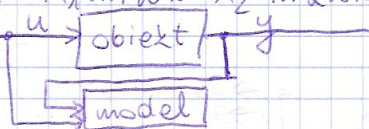 u obiekt y
model